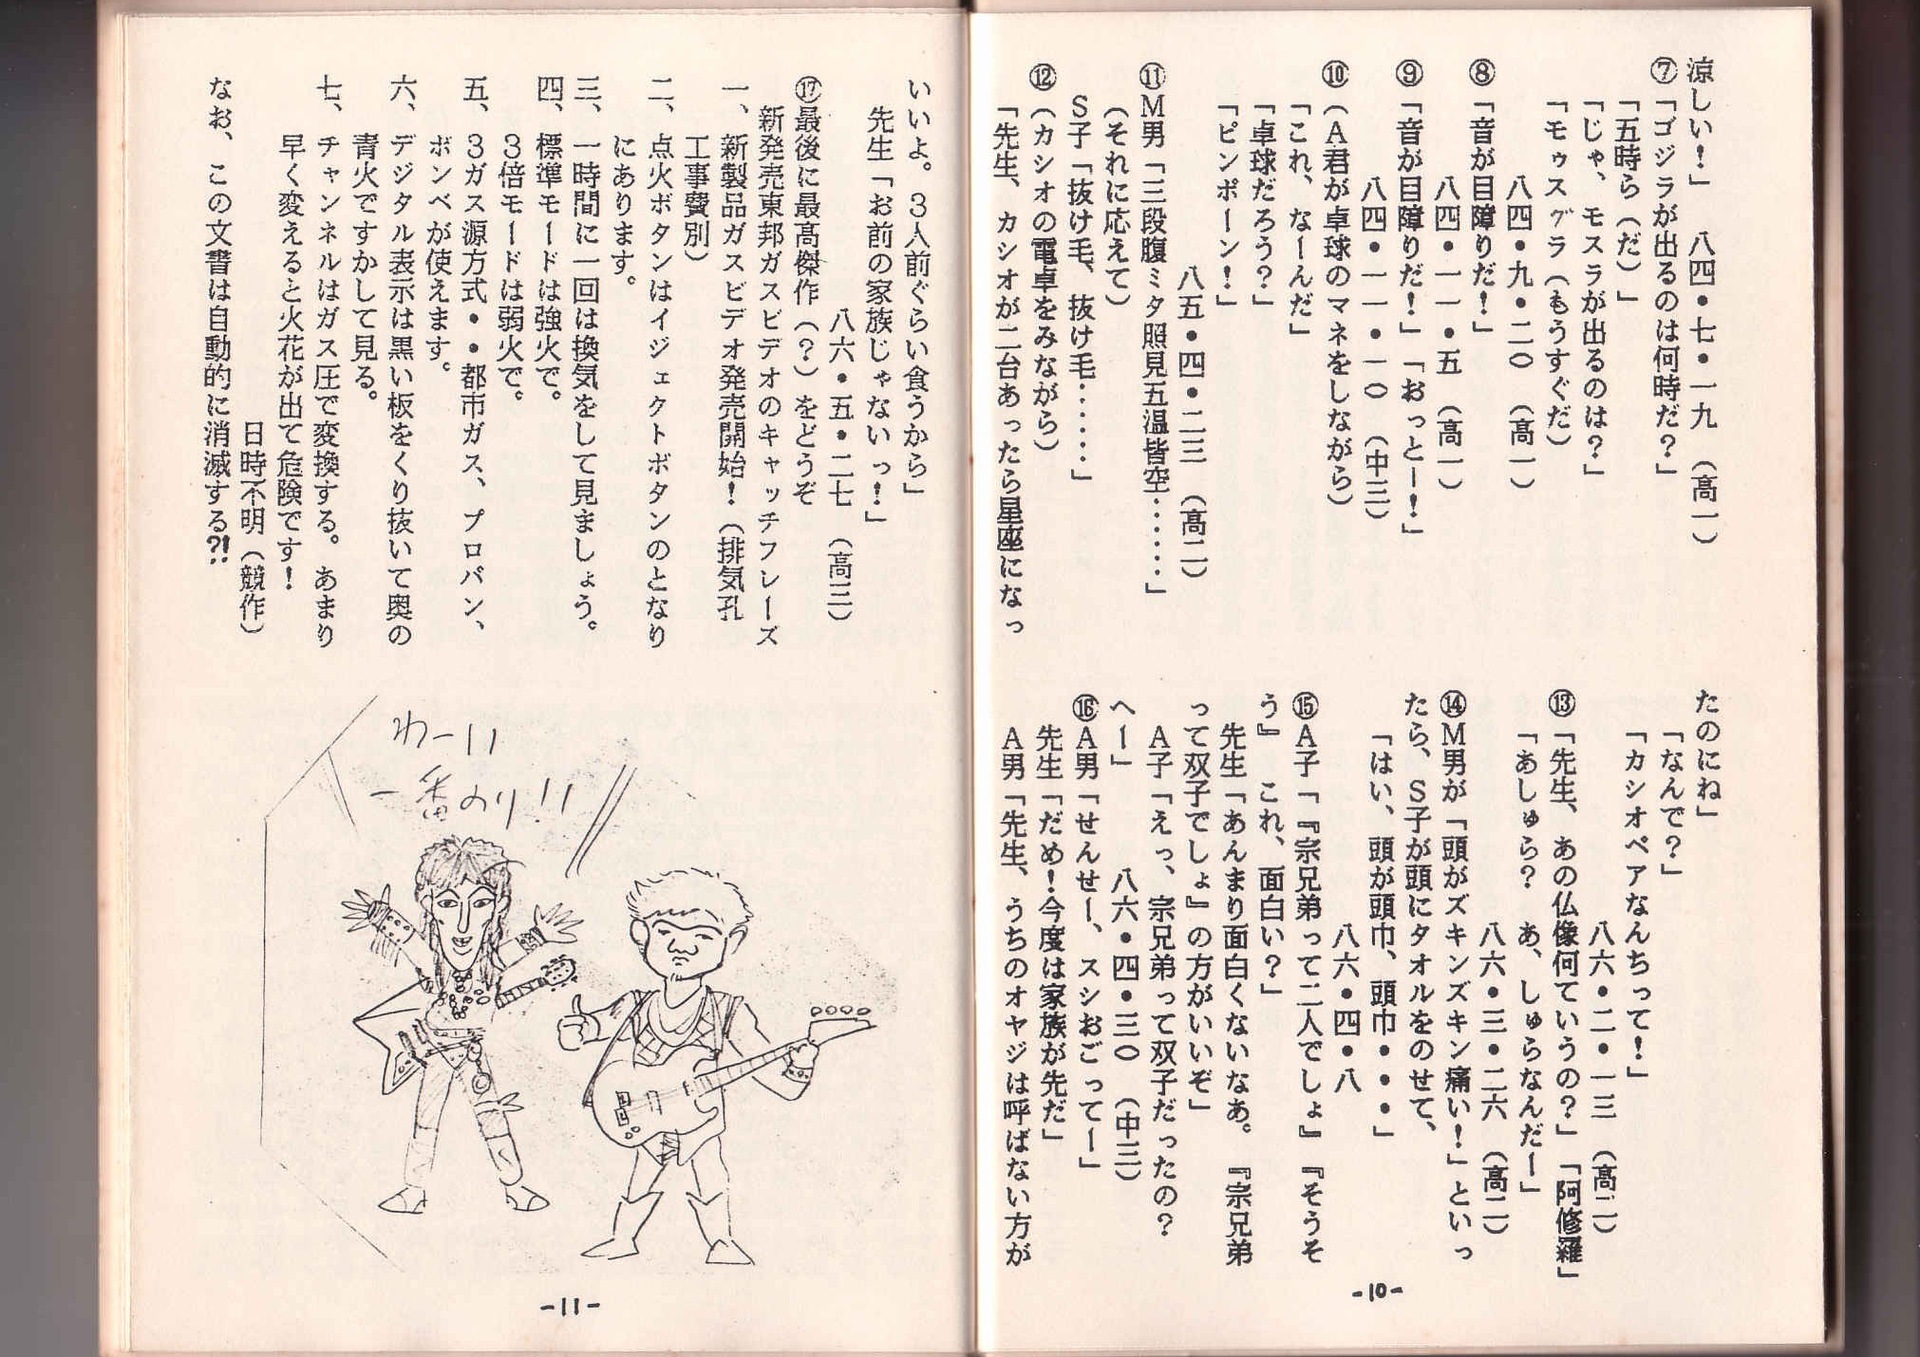 涼しい！」　八四・七・一九　（高一）
⑦「ゴジラが出るのは何時だ？」
「五時ら（だ）」
「じゃ、モスラが出るのは？」
「モゥスグラ（もうすぐだ）
八四・九・二〇　（高一）
⑧「音が目障りだ！」
八四・一一・五　（高一）
⑨「音が目障りだ！」「おっとー！」
八四・一一・一〇　（中三）
⑩（A君が卓球のマネをしながら）
「これ、なーんだ」
「卓球だろう？」
「ピンポーン！」
八五・四・二三　（高二）
⑪M男「三段腹ミタ照見五温皆空・・・・・・」
（それに応えて）
S子「抜け毛、抜け毛・・・・・・」
⑫（カシオの電卓をみながら）
「先生、カシオが二台あったら星座になっ
たのにね」
「なんで？」
「カシオペアなんちって！」
八六・二・一三　（高二）
⑬「先生、あの仏像何ていうの？」「阿修羅」
「あしゅら？　あ、しゅらなんだー」
八六・三・二六　（高二）
⑭M男が「頭がズキンズキン痛い！」といっ
たら、S子が頭にタオルをのせて、
「はい、頭が頭巾、頭巾・・・」
八六・四・八
⑮A子「『宗兄弟って二人でしょ』『そうそ
う』　これ、面白い？」
先生「あんまり面白くないなあ。　『宗兄弟
って双子でしょ』の方がいいぞ」
A子「えっ、宗兄弟って双子だったの？
へー」　八六・四・三〇　（中三）
⑯A男「せんせー、スシおごってー」
先生「だめ！今度は家族が先だ」
A男「先生、うちのオヤジは呼ばない方が
-10-
いいよ。3人前ぐらい食うから」
先生「お前の家族じゃないっ！」
八六・五・二七　（高三）
⑰最後に最高傑作（？）をどうぞ
新発売東邦ガスビデオのキャッチフレーズ
一、新製品ガスビデオ発売開始！（排気孔
工事費別）
二、点火ボタンはイジェクトボタンのとなり
にあります。
三、一時間に一回は換気をして見ましょう。
四、標準モードは強火で。
3倍モードは弱火で。
五、3ガス源方式・・都市ガス、プロパン、
ボンベが使えます。
六、デジタル表示は黒い板をくり抜いて奥の
青火ですかして見る。
七、チャンネルはガス圧で変換する。あまり
早く変えると火花が出て危険です！
日時不明（競作）
なお、この文書は自動的に消滅する?!
わーい
一番のり!!
-11-